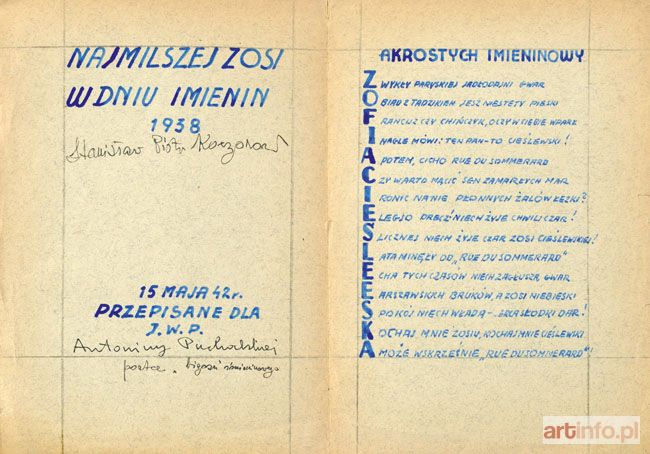 NAJMILSZEJ ZOSI
W DNIU IMIENIN
1938
Stanisław Piotr
15 MAJA 42 r.
PRZEPISANE DLA
J.W.P.
Antoniny Puchalskiej
poetce „bigosu imieninowego
AKROSTYCH IMIENINOWY
ZWYKŁY PARYSKIEJ JADŁODAJNI GWAR
OBIAD Z TADZIKIEM JESZ NIESTETY PIESKI
FRANCUZ CZY CHIŃCZYK, OCZY W CIEBIE WPARŁ
I NAGLE MÓWI: TEN PAN-TO CIEŚLEWSKI!
A POTEM, CICHO RUE DU SOMMERARD
CZY WARTO MĄCIĆ SEN ZAMARŁYCH MAR
I RONIĆ NA NIE PŁONNYCH ŻALÓW ŁEZKI?
ELEGJO PRECZ! NIECH ŻYJE CHWILI CZAR!
ŚLICZNEJ NIECH ŻYJE CZAR ZOSI CIEŚLEWSKIEJ!
LATA MINĘŁY OD „RUE DU SOMMERARD"
ECHA TYCH CZASÓW NIECH ZAGŁUSZA GWAR
WARSZAWSKICH BRUKÓW, A ZOSI NIEBIESKI
SPOKÓJ NIECH WŁADA - SŁODKI DAR!
KOCHAJ MNIE ZOSIU, KOCHAJ MNIE CIEŚLEWSKI
A MOŻE WSKRZEŚNIE „RUE DU SOMMERARD"!
artinfo.pl